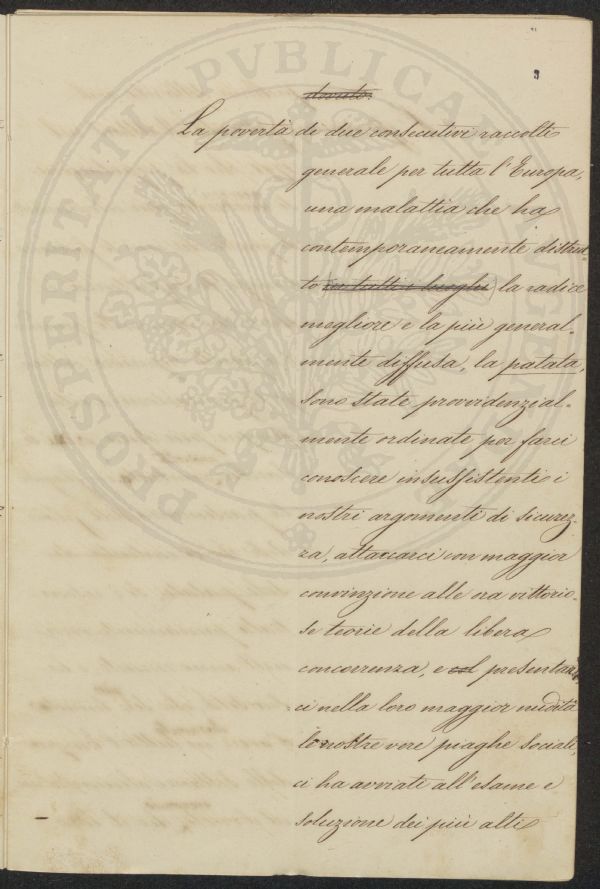 3
dovuto.
La povertà di due consecutivi raccolti
generale per tutta l'Europa,
una malattia che ha
contemporaneamente distrut-
to in tutti i luoghi la radice
megliore e la più general-
mente diffusa, la patata,
sono state provvidenzial-
mente ordinate per farci
conoscere insussistenti i
nostri argomenti di sicurez-
za, attaccarci con maggior
convinzione alle ora vittorio-
se teorie della libera
concorrenza, e col presentar-
ci nella loro maggior nudità
le nostre vere piaghe sociali,
ci ha avviati all'esame e
soluzione dei più alti
PROSPERITATI PVBLICAE